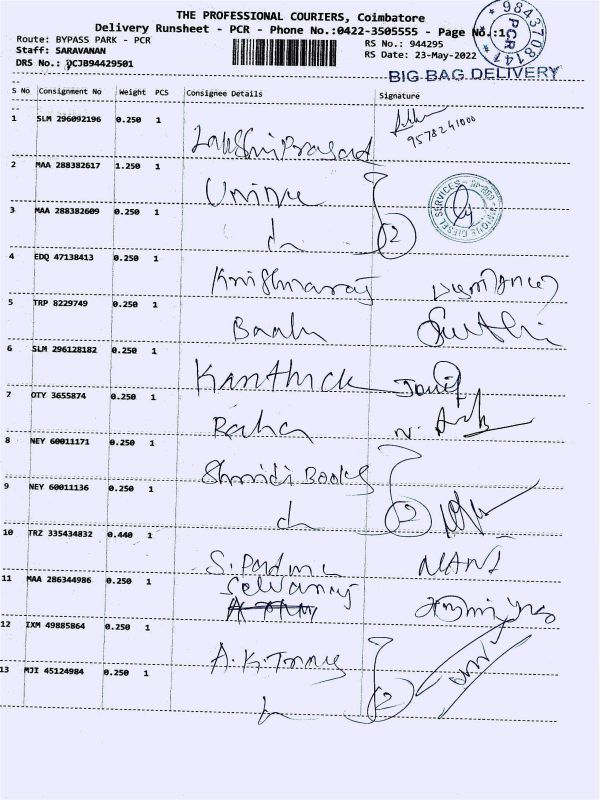 THE PROFESSIONAL COURIERS, Coimbatore
Delivery Runsheet - PCR - Phone No:0422-3505555 - Page No.:1
Route: BYPASS PARK - PCR
Staff: SARAVANAN
DRS No.: PCJB94429501
RS No.: 944295
RS Date: 23-May-2022
9843708147
PCR
BIG BAG DELIVERY
S No Consignment No Weight PCS Consignee Details Signature
1 SLM 296092196 0.250 1
9578241000
Lakshmi Prasad
2 MAA 288382617 1.250 1
Unique
3 MAA 288382609 0.250 1
2
DIESEL SERVICES
4 EDQ 47138413 0.250 1
Krishnaraj
5 TRP 8229749 0.250 1
6 SLM 296128182 0.250 1
Karthick
7 OTY 3655874 0.250 1
8 NEY 60011171 0.250 1
Books
9 NEY 60011136 0.250 1
2
10 TRZ 335434832 0.440 1
S. Padma
MANI
11 MAA 286344986 0.250 1
Selvaraj
12 IXM 49885864 0.250 1
A.K.
13 MJI 45124984 0.250 1
2